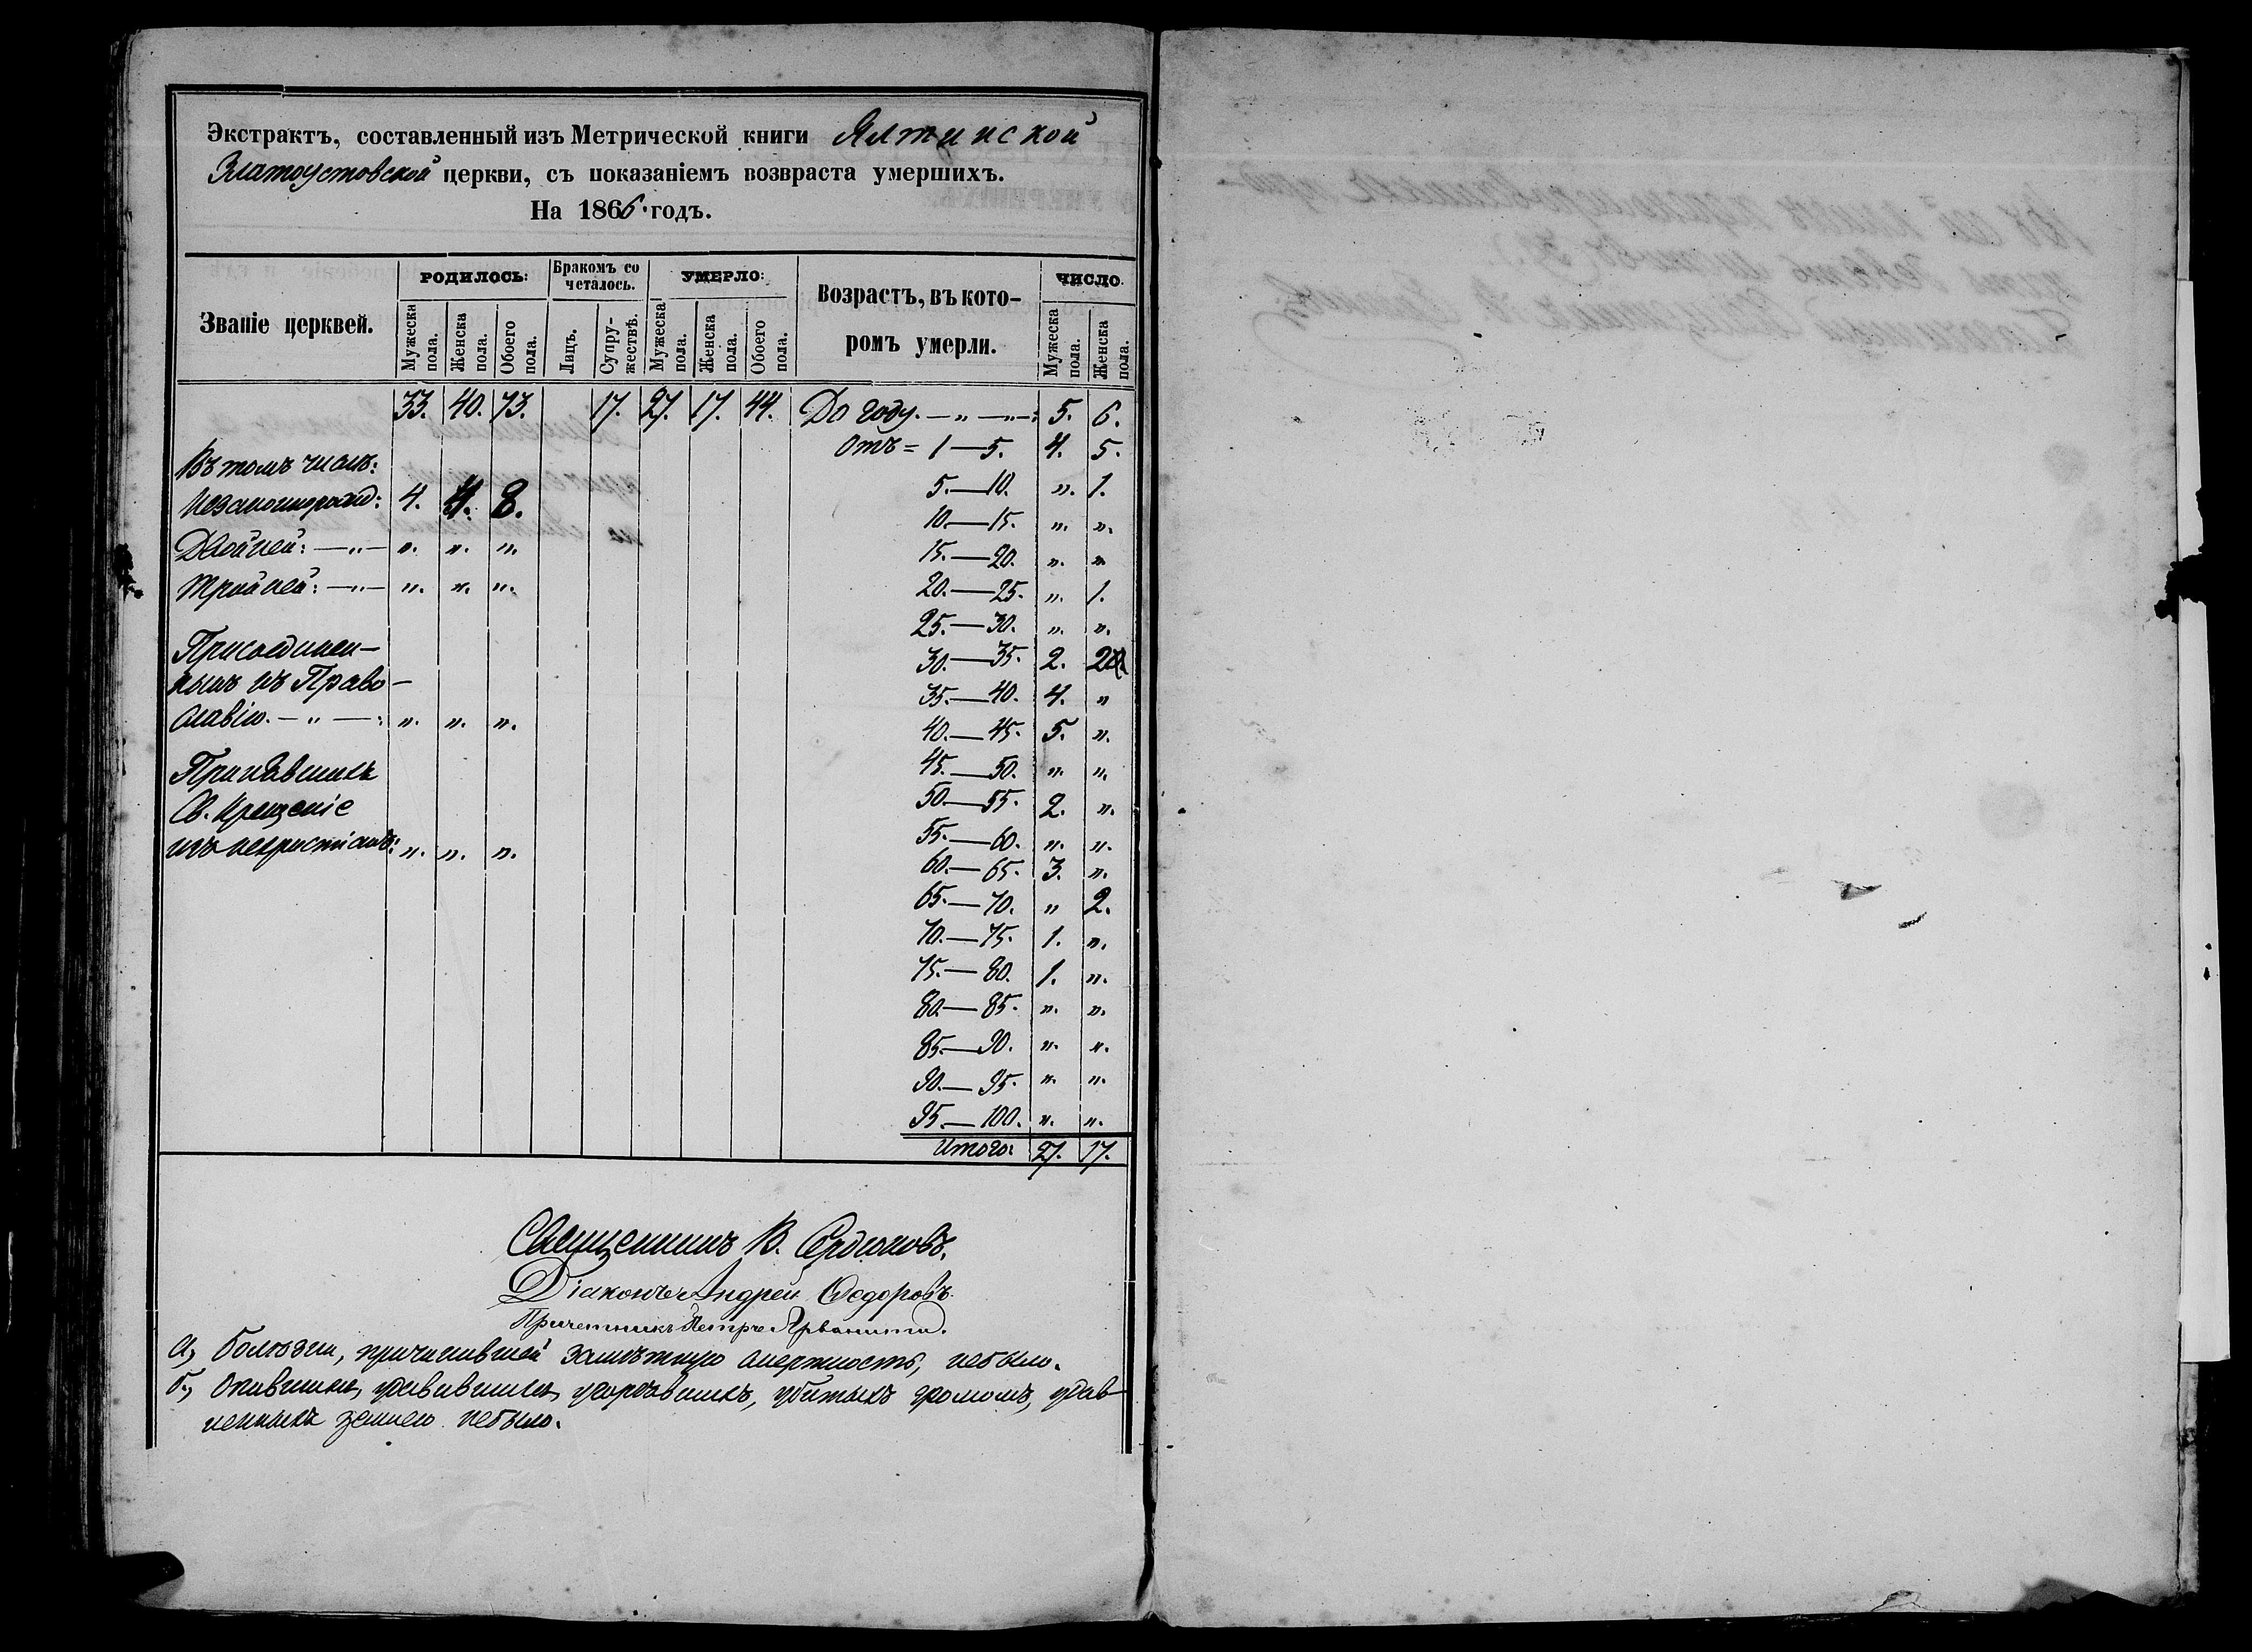 Экстрактъ, составленный изъ Метрической книги Ялтинской
Златоустовской церкви, съ показаніемъ возвраста умершихъ.
На 1866. годъ.
Званіе церквей.
РОДИЛОСЬ:
Мужеска пола.
Женска пола.
Обоего пола.
Бракомъ со
четалось.
Лицъ.
Супру-
жествъ.
УМЕРЛО:
Мужеска пола.
Женска пола.
Обоего пола.
Возрастъ, въ кото-
ромъ умерли.
ЧИСЛО.
Мужеска пола.
Женска пола.
33. 40. 73. 17. 27. 17. 44. До году. — „ — „ —: 5. 6.
Отъ = 1 — 5. 4. 5.
Въ томъ числѣ:
5. — 10. „. 1.
Незаконнорожд: 4. 4. 8.
10. — 15. „. „.
Двойней: — „ — „. „. „.
15. — 20. „. „.
Тройней: — „ — „. „. „.
20. — 25. „. 1.
25. — 30. „. „.
Присоединен-
30. — 35. 2. 2.
ныхъ къ Право-
35. — 40. 4. „
славію. — „ —: „. „. „.
40. — 45. 5. „.
Принявшихъ
45. — 50. „. „.
Св. Крещеніе
50. — 55. 2. „.
изъ нехристіанъ: „. „. „.
55. — 60. „. „.
60. — 65. 3. „.
65. — 70. „ 2.
70. — 75. 1. „.
75. — 80. 1. „.
80. — 85. „. „.
85. — 90. „. „.
90. — 95. „. „.
95. — 100. „. „.
Итого: 27. 17.
Священникъ В. Сердюковъ.
Діаконъ Андрей Ѳедоровъ.
Причетникъ Петръ Арванити.
а, болѣзни, причинившей замѣтную смертность, небыло.
б, Опившихся, удавившихся, угорѣвшихъ, убитыхъ громомъ, удав-
ленныхъ землею небыло.